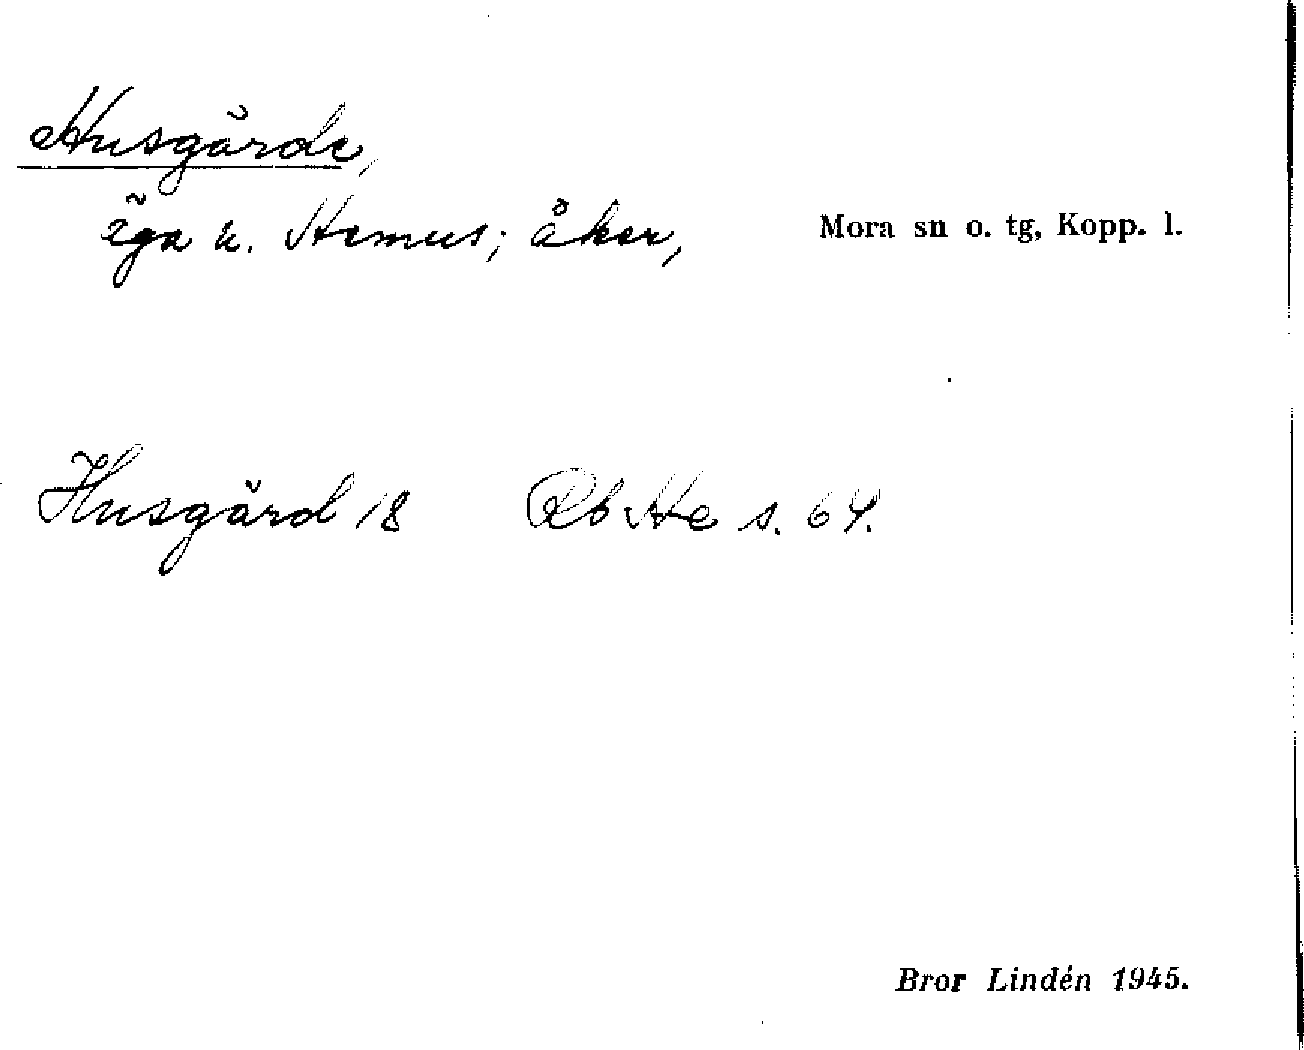 Husgärde,
äga u. Hemus; åker,
Mora sn o. tg, Kopp. l.
Husgärd 18 Rb He s. 64.
Bror Lindén 1945.